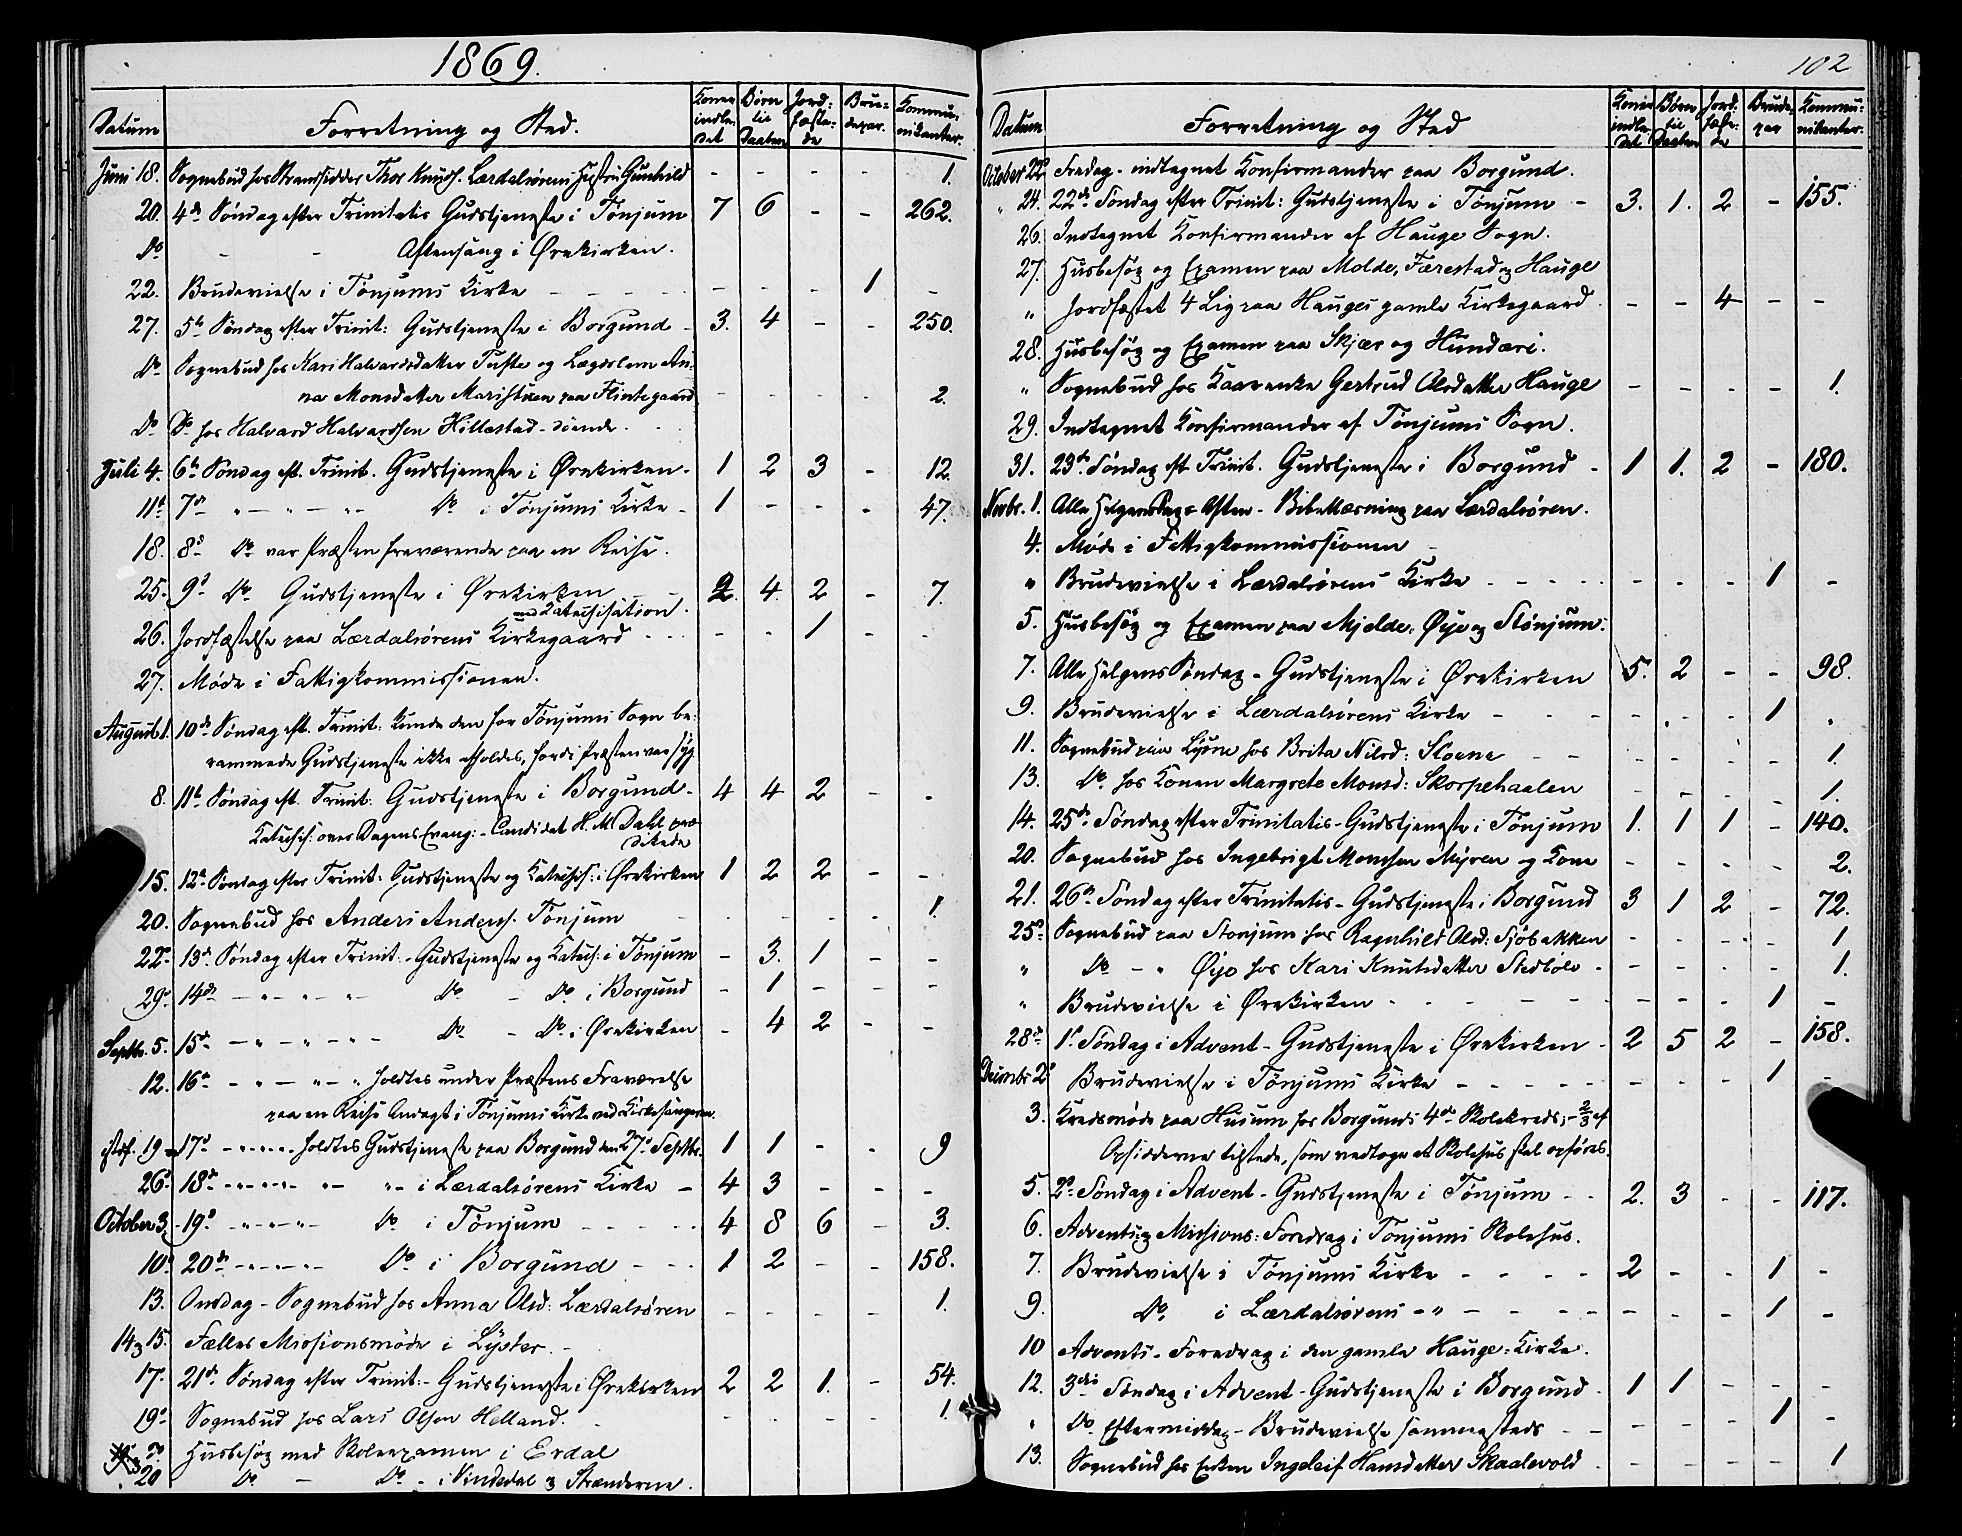 1869.
Datum | Forretning og Sted. | Koner indle- det | Børn til Daaben | Jord- fæste- de | Bru- depar. | Kommu- nikanter.
Juni 18. Sognebud hos Strandsidder Thor Knuds. Lærdalsørens Hustru Gunhild - - - - 1.
20. 4de Søndag efter Trinitatis Gudstjeneste i Tønjum 7 6 - - 262.
Do - - Aftensang i Ørekirken.
22. Brudevielse i Tønjums Kirke - - - 1 -
27. 5te Søndag efter Trinit: Gudstjeneste i Borgund - 3. 4 - - 250.
Do Sognebud hos Kari Halvardsdatter Tufte og Lægdslem An-
na Monsdatter Maristuen paa Flintegaard - - - - 2.
Do Do hos Halvard Halvardsen Hillestad - døende.
Juli 4. 6te Søndag eft. Trinit. Gudstjeneste i Ørekirken. 1 2 3 - 12.
11te 7de " - " - " Do i Tønjums Kirke - 1 - - - 47.
18. 8de Do var Præsten fraværende paa en Reise.
25. 9de Do Gudstjeneste i Ørekirken 2. 4. 2 - 7.
med Katechisation.
26. Jordfæstelse paa Lærdalsørens Kirkegaard - - - 1 - -
27. Møde i Fattigkommissionen.
August 1. 10de Søndag eft. Trinit: kunde den for Tønjums Sogn be-
rammede Gudstjeneste ikke afholdes, fordi Præsten var syg
8. 11te Søndag eft. Trinit: Gudstjeneste i Borgund - 4 4 2 - -
Katechis: over Dagens Evang: - Candidat H. M. Dahl præ-
dikede
15. 12te Søndag efter Trinit: Gudstjeneste og Katechis: i Ørekirken 1 2 2 - -
20. Sognebud hos Anders Anders. Tønjum - - - - 1.
22de 13de Søndag efter Trinit: - Gudstjeneste og Katech: i Tønjum - 3. 1 - -
29de 14de - " - " - " - Do - Do i Borgund - 1 - - -
Septbr. 5. 15de - " - " - " - Do - Do i Ørekirken - 4 2 - -
12. 16de - " - " - " holdtes under Præstens Fraværelse
paa en Reise Andagt i Tønjums Kirke ved Kirkesangeren.
istdf. 19 - 17de - " - " - " holdtes Gudstjeneste paa Borgund den 27de Septbr. 1 1 - - 9
26de 18de - " - " - " - " - i Lærdalsørens Kirke - 4 3 - - -
October 3. 19de - " - " - " - Do i Tønjum - - - 4 8 6 - 3.
10de 20de - " - " - Do i Borgund - - - 1 2 - - 158.
13. Onsdag - Sognebud hos Anna Olsd: Lærdalsøren - - - - 1.
14 & 15. Fælles Missionsmøde i Lyster. -
17. 21de Søndag efter Trinit: - Gudstjeneste i Ørekirken 2 2 1. - 54.
19de Sognebud hos Lars Olsen Helland. - - - - 1.
Do Husbesøg med Skoleexamen i Erdal
20 Do - Do - i Vindedal & Strænderne.
102
Datum | Forretning og Sted | Koner indle- det | Børn til Daaben | Jord- fæste- de | Brude- par | Kommu- nikanter.
October 22de Fredag - indtegnet Konfirmander paa Borgund.
" 24. 22de Søndag efter Trinit: Gudstjeneste i Tønjum - 3. 1. 2 - 155.
26. Indtegnet Konfirmander af Hauge Sogn.
27. Husbesøg og Examen paa Molde, Færestad og Hauge
" Jordfæstet 4 Lig paa Hauges gamle Kirkegaard - - 4 - -
28. Husbesøg og Examen paa Skjær og Hundæri.
" Sognebud hos Kaarenke Gertrud Olsdatter Hauge - - - - 1.
29. Indtegnet Konfirmander af Tønjums Sogn.
31. 23de Søndag eft. Trinit. Gudstjeneste i Borgund - 1 1. 2 - 180.
Novbr. 1. Alle Helgens Dags Aften - Bibellæsning paa Lærdalsøren.
4. Møde i Fattigkommissionen
" Brudevielse i Lærdalsørens Kirke - - - - - - - 1 -
5. Husbesøg og Examen paa Mjelde, Øye og Stønjum.
7. Alle Helgens Søndag - Gudstjeneste i Ørekirken 5. 2 - - 98.
9. Brudevielse i Lærdalsørens Kirke - - - - - - 1 -
11. Sognebud paa Lysne hos Brita Nilsd: Sloene - - - - - - 1.
13. Do hos Konen Margrete Monsd: Skorpehaalen - - - - 1.
14. 25de Søndag efter Trinitatis - Gudstjeneste i Tønjum 1. 1 1 - 140.
20. Sognebud hos Ingebrigt Monsen Myren og Kone - - - - 2.
21. 26de Søndag efter Trinitatis - Gudstjeneste i Borgund 3 1 2 - 72.
25de Sognebud paa Stønjum hos Ragnhild Olsd: Sjøbakken - - - - 1
" Do - " Øye hos Kari Knutsdatter Stedbøle - - - - - 1.
" Brudevielse i Ørekirken - - - - - - - - 1 -
28de 1ste Søndag i Advent - Gudstjeneste i Ørekirken - 2 5 2 - 158.
Decembr 2de Brudevielse i Tønjums Kirke - - - - - - - 1 -
3. Kredsmøde paa Husum for Borgunds 4de Skolekreds; - 2/3 af
Opsidderne tilstede, som vedtoge at Skolehus skal opføres.
5. 2de Søndag i Advent - Gudstjeneste i Tønjum - - 2. 3 - - 117.
6. Advents & Missions: Foredrag i Tønjums Skolehus.
7. Brudevielse i Tønjums Kirke - - - - 2 - - 1 -
9. Do i Lærdalsørens - " - - - - - - - 1 -
10 Advents - Foredrag i den gamle Hauge-Kirke.
12. 3die Søndag i Advent - Gudstjeneste i Borgund - 1 1 - - -
" Do Eftermiddag - Brudevielse sammesteds - - - - - 1 -
13. Sognebud hos Enken Ingeleif Hansdatter Skaalevold - - - - - 1